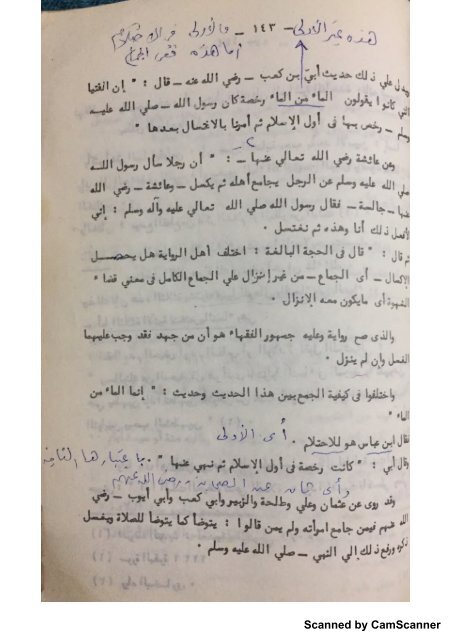 هذه غير الأولى - ١٤٣ - والأولى في الاحتلام
أما هذه ففى الجماع
ويدل على ذلك حديث أبيّ بن كعب - رضي الله عنه - قال : " إن الفتيا
التي كانوا يقولون الماء من الماء رخصة كان رسول الله - صلي الله عليه
وسلم - رخص بها فى أول الإسلام ثم أمرنا بالاغتسال بعدها "
وعن عائشة رضي الله تعالي عنها - : " أن رجلا سأل رسول اللـه
صلي الله عليه وسلم عن الرجل يجامع أهله ثم يكسل - وعائشة - رضي الله
عنها - جالسة - فقال رسول الله صلي الله تعالي عليه وآله وسلم : إني
لأفعل ذلك أنا وهذه ثم نغتسل .
ثم قال : " قال فى الحجة البالغة : اختلف أهل الرواية هل يحصـل
الإكمال - أى الجماع - من غير إنزال علي الجماع الكامل فى معني قضاء
الشهوة أى مايكون معه الإنزال .
والذى صح رواية وعليه جمهور الفقهاء هو أن من جهد فقد وجب عليهما
الغسل وإن لم ينزل .
واختلفوا فى كيفية الجمع بين هذا الحديث وحديث : " إنما الماء من
الماء "
أى الأولى
فقال ابن عباس هو للاحتلام .
وقال أبي : " كانت رخصة فى أول الإسلام ثم نهي عنها " . باعتبارها الثانية
وأى عن الصحابة رضى الله عنهم
وقد روى عن عثمان وعلي وطلحة والزبير وأبي كعب وأبي أيوب - رضي
الله عنهم فيمن جامع امرأته ولم يمن قالوا : يتوضأ كما يتوضأ للصلاة ويغسل
ذكره ورفع ذلك إلي النبي - صلي الله عليه وسلم .
Scanned by CamScanner